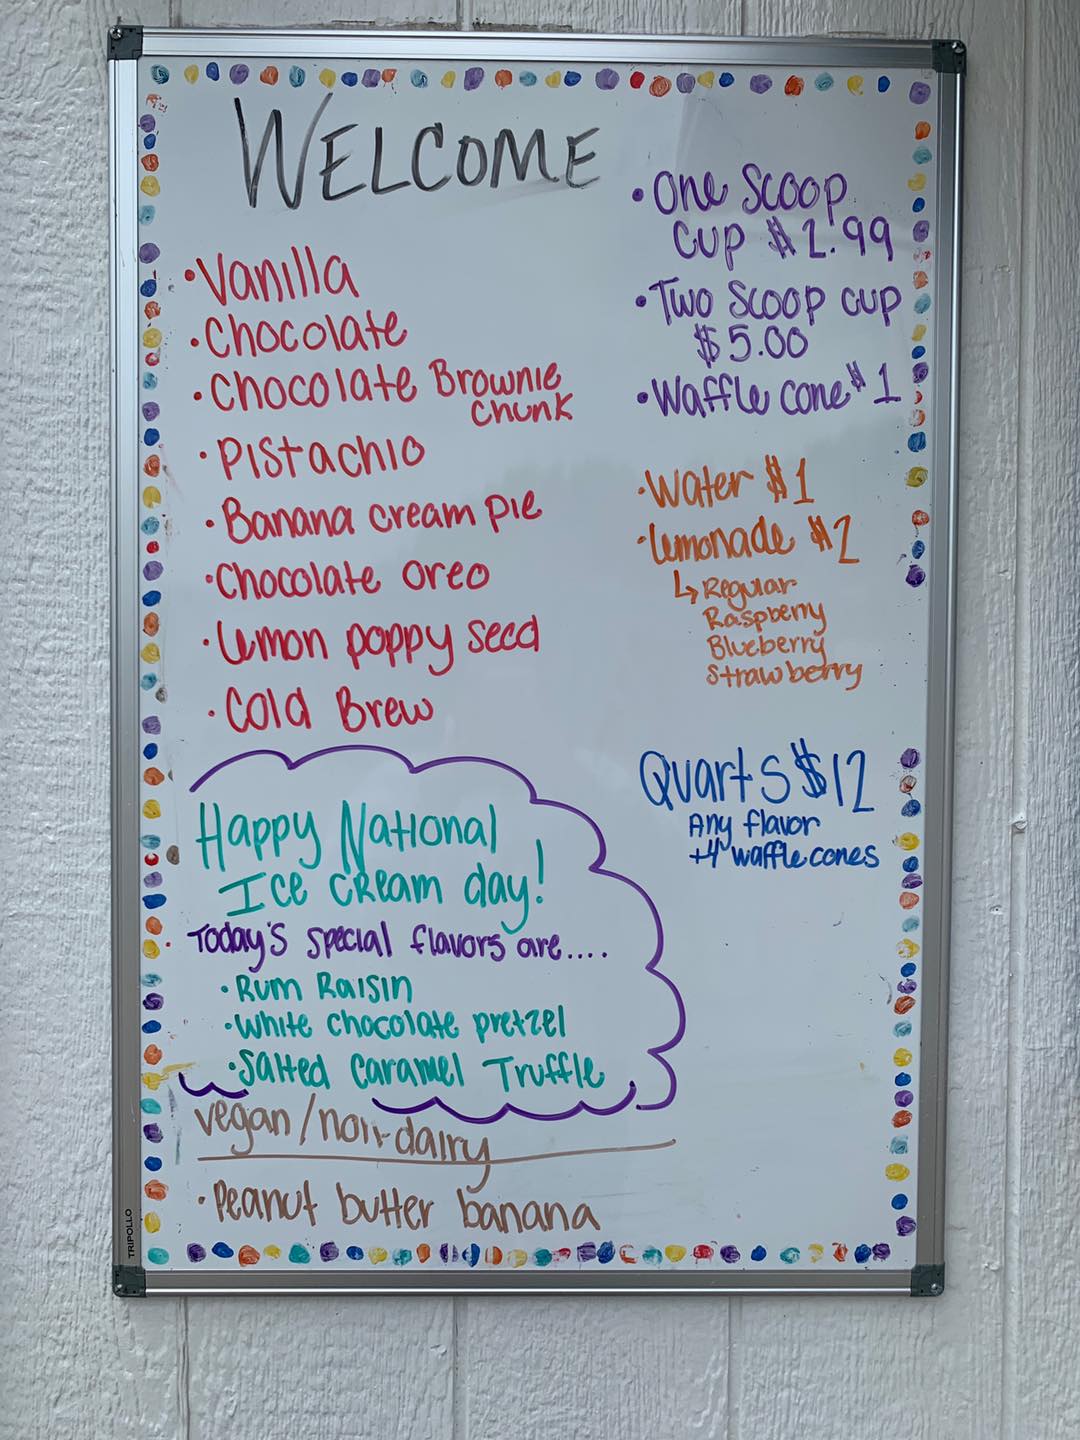 WELCOME
• Vanilla
• Chocolate
• Chocolate Brownie
Chunk
• Pistachio
• Banana cream pie
• Chocolate Oreo
• Lemon poppy seed
• Cold Brew
Happy National
Ice Cream day!
Today's special flavors are....
• Rum Raisin
• White chocolate pretzel
• Salted Caramel Truffle
vegan/non-dairy
• Peanut butter banana
• One Scoop
Cup $2.99
• Two Scoop cup
$5.00
• Waffle cone $1
• Water $1
• Lemonade $2
↳ Regular
Raspberry
Blueberry
Strawberry
Quarts $12
Any flavor
+4 waffle cones
TRIPOLLO